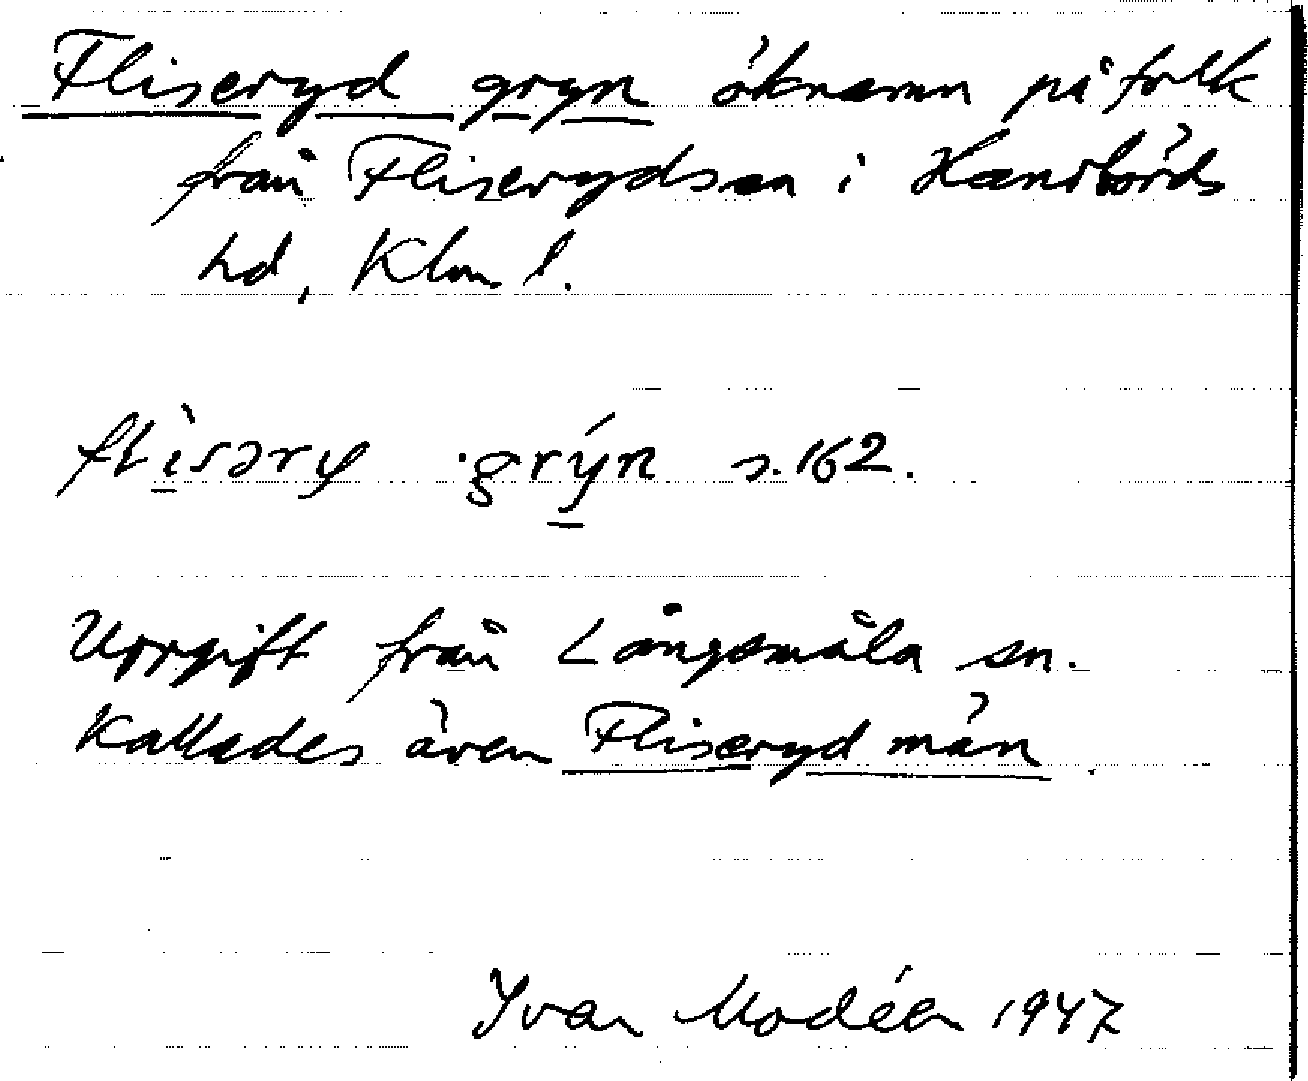 Fliseryd gryn öknamn på folk
från Fliseryds sn i Handbörds
hd, Klm l.
flìsəry ·grýn s. 162.
Uppgift från Långemåla sn.
Kallades även Fliseryd män.
Yvar Modéer 1947